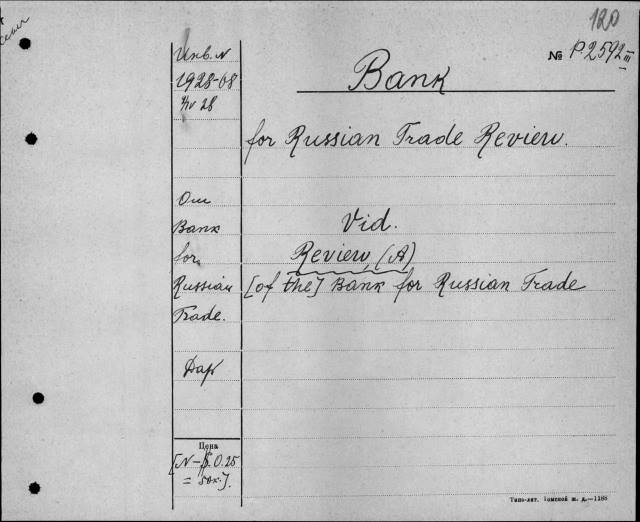 120
№ P.2592 III
Инв. N
1928-08
4/IV 28
Bank
for Russian Trade Review.
От
Bank
for
Russian
Trade.
Vid.
Review, (A)
[of the] Bank for Russian Trade
Дар
Цена
[N - 0.25
= 50к.].
Типо-лит. Томской ж. д.—1288